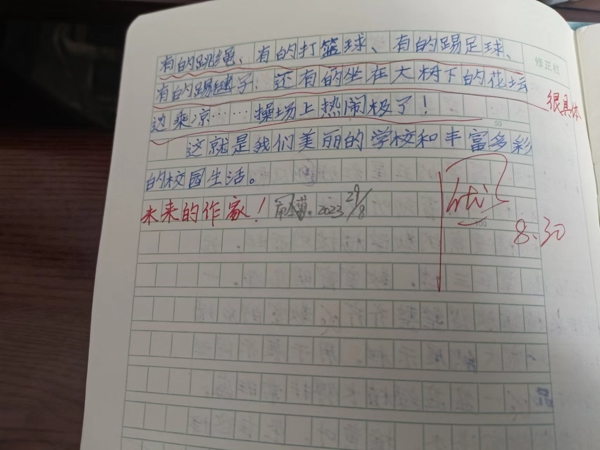 有的跳绳、有的打篮球、有的踢足球、
有的踢毽子，还有的坐在大树下的花坛
边乘凉……操场上热闹极了！
很具体
这就是我们美丽的学校和丰富多彩
的校园生活。
优
8.30
未来的作家！
2023 29/8